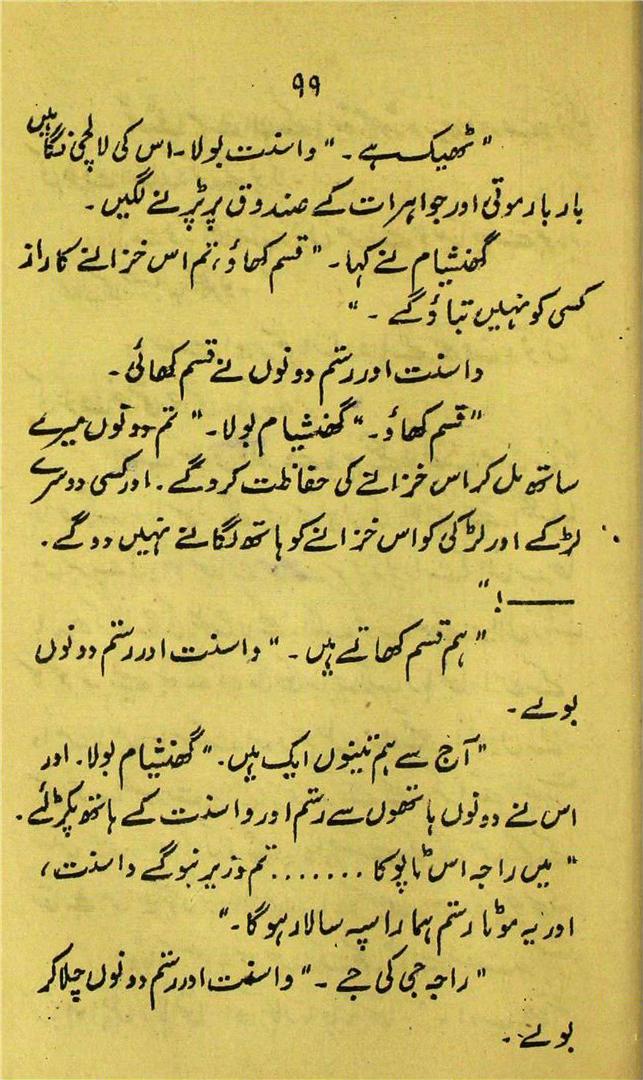 ۹۹
"ٹھیک ہے۔" واسنت بولا۔ اس کی لالچی نگاہیں
بار بار موتی اور جواہرات کے صندوق پر پڑنے لگیں۔
گھنشیام نے کہا۔ "قسم کھاؤ، تم اس خزانے کا راز
کسی کو نہیں بتاؤ گے۔"
واسنت اور رستم دونوں نے قسم کھائی۔
"قسم کھاؤ۔" گھنشیام بولا۔ "تم دونوں میرے
ساتھ مل کر اس خزانے کی حفاظت کرو گے۔ اور کسی دوسرے
لڑکے اور لڑکی کو اس خزانے کو ہاتھ لگانے نہیں دو گے۔
——!"
"ہم قسم کھاتے ہیں۔" واسنت اور رستم دونوں
بولے۔
"آج سے ہم تینوں ایک ہیں۔" گھنشیام بولا۔ اور
اس نے دونوں ہاتھوں سے رستم اور واسنت کے ہاتھ پکڑ لئے۔
"میں راجہ اس ٹاپو کا ....... تم وزیر بنو گے واسنت،
اور یہ موٹا رستم ہمارا سپہ سالار ہو گا۔"
"راجہ جی کی جے۔" واسنت اور رستم دونوں چلا کر
بولے۔